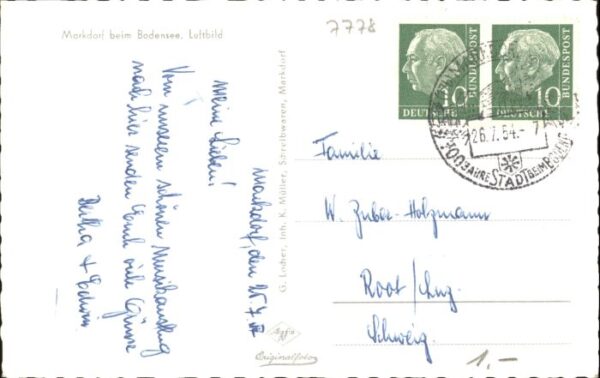 7778
Markdorf beim Bodensee, Luftbild
Markdorf, den 25.7.
Meine Lieben!
Von unserem schönen Musikausflug
nach hier senden Euch viele Grüsse
Bertha + Edwin
G. Locher, Inh. K. Müller, Schreibwaren, Markdorf
10
DEUTSCHE
BUNDESPOST
10
DEUTSCHE
BUNDESPOST
26.7.64.-7
700 JAHRE STADT BEIM BODENSEE
Familie
W. Zuber-Holzmann
Root/Luz.
Schweiz.
Agfa
Originalfoto
1.-